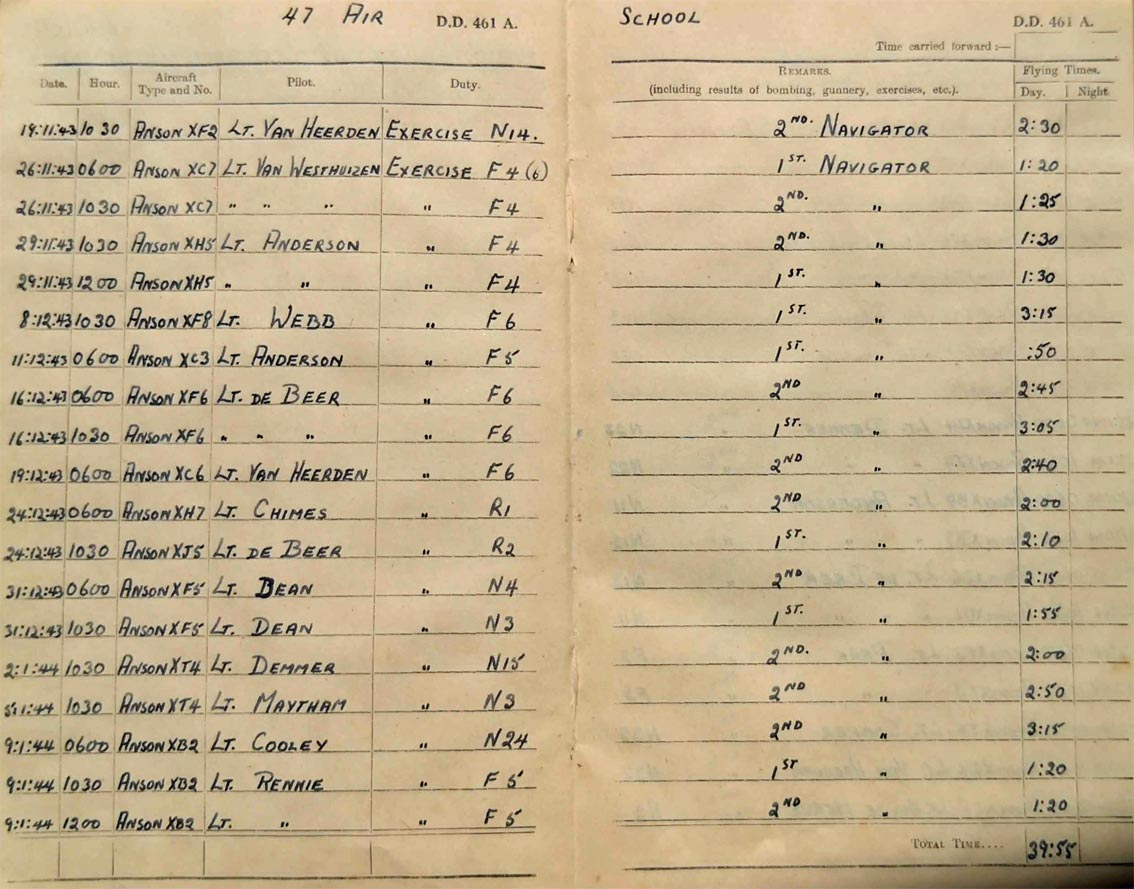 47 AIR D.D. 461 A. SCHOOL D.D. 461 A.
Time carried forward :—
Date. Hour. Aircraft Type and No. Pilot. Duty. REMARKS. (including results of bombing, gunnery, exercises, etc.). Flying Times. Day. Night
19:11:43 10 30 ANSON XF2 LT. VAN HEERDEN EXERCISE N14. 2ND. NAVIGATOR 2:30
26:11:43 0600 ANSON XC7 LT. VAN WESTHUIZEN EXERCISE F4 (6) 1ST. NAVIGATOR 1:20
26:11:43 1030 ANSON XC7 " " " " F4 2ND. " 1:25
29:11:43 1030 ANSON XH5 LT. ANDERSON " F4 2ND. " 1:30
29:11:43 1200 ANSON XH5 " " " F4 1ST. " 1:30
8:12:43 1030 ANSON XF8 LT. WEBB " F6 1ST. " 3:15
11:12:43 0600 ANSON XC3 LT. ANDERSON " F5 1ST. " :50
16:12:43 0600 ANSON XF6 LT. DE BEER " F6 2ND " 2:45
16:12:43 1030 ANSON XF6 " " " " F6 1ST. " 3:05
19:12:43 0600 ANSON XC6 LT. VAN HEERDEN " F6 2ND " 2:40
24:12:43 0600 ANSON XH7 LT. CHIMES " R1 2ND " 2:00
24:12:43 1030 ANSON XJ5 LT. DE BEER " R2 1ST. " 2:10
31:12:43 0600 ANSON XF5 LT. DEAN " N4 2ND " 2:15
31:12:43 1030 ANSON XF5 LT. DEAN " N3 1ST. " 1:55
2:1:44 1030 ANSON XT4 LT. DEMMER " N15 2ND. " 2:00
5:1:44 1030 ANSON XT4 LT. MAYTHAM " N3 2ND " 2:50
9:1:44 0600 ANSON XB2 LT. COOLEY " N24 2ND " 3:15
9:1:44 1030 ANSON XB2 LT. RENNIE " F5 1ST " 1:20
9:1:44 1200 ANSON XB2 LT. " " F5 2ND " 1:20
TOTAL TIME.... 39:55